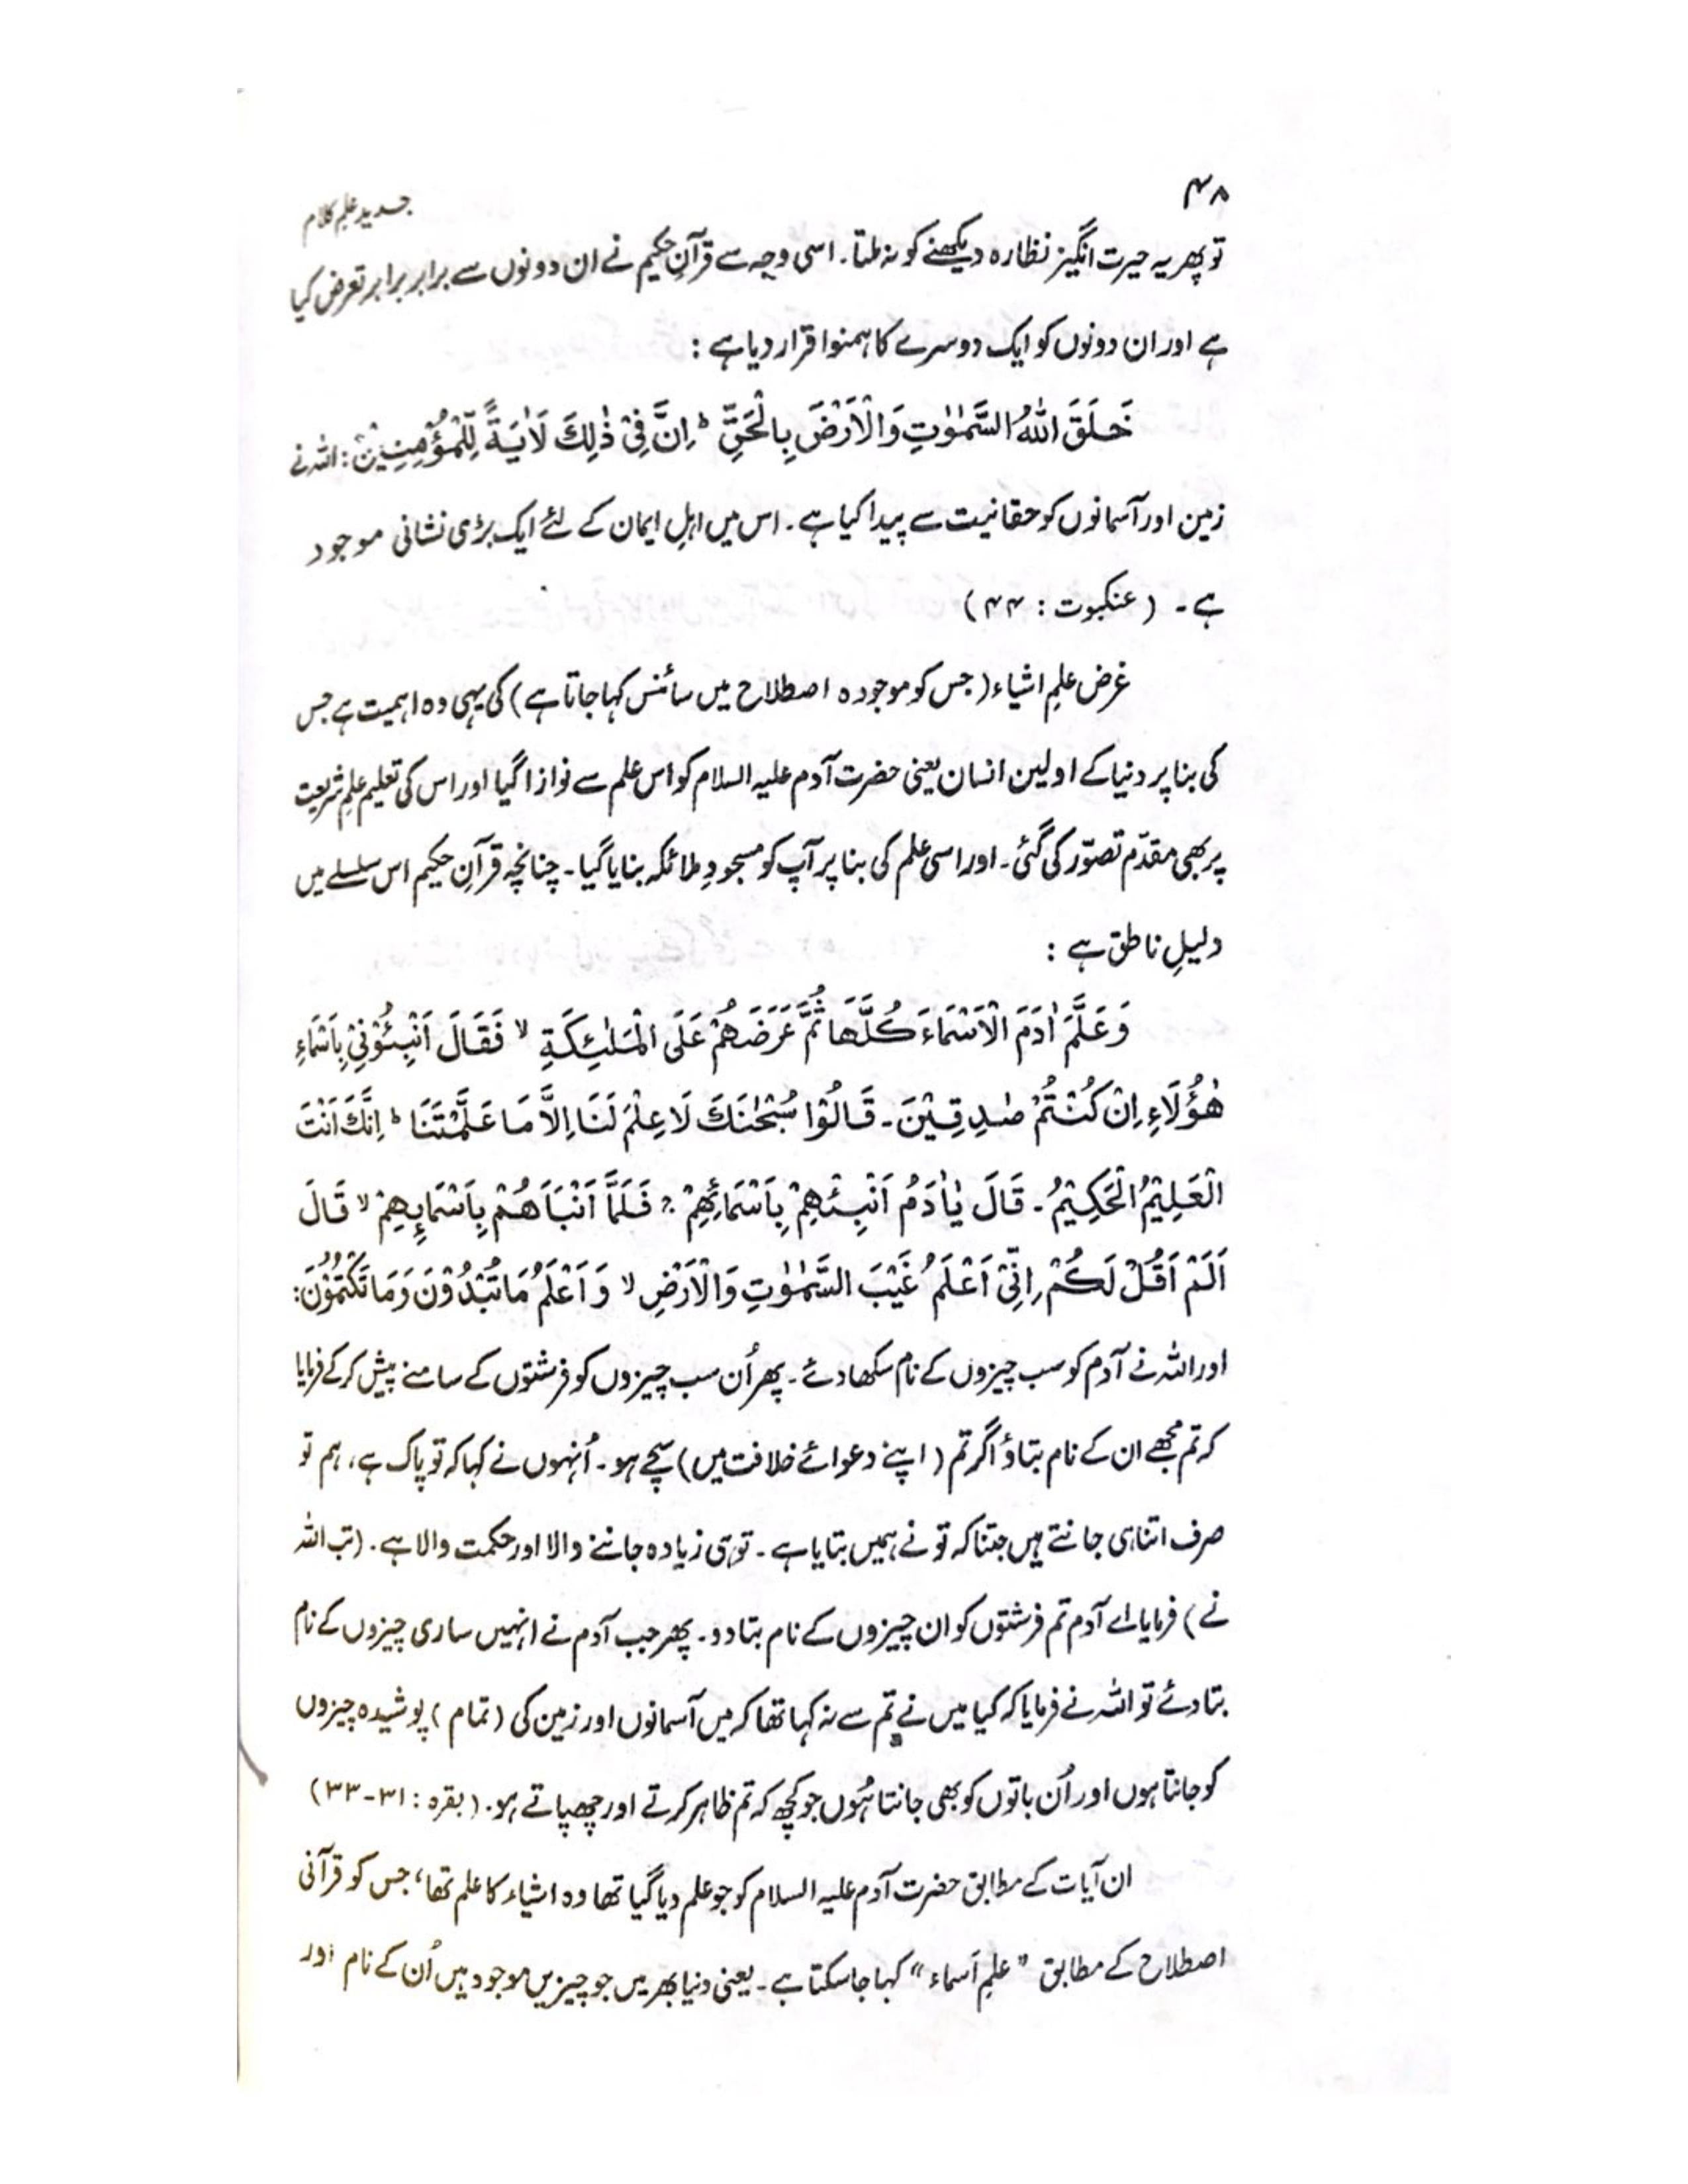 ۴۸
جدید علم کلام
تو پھر یہ حیرت انگیز نظارہ دیکھنے کو نہ ملتا۔ اسی وجہ سے قرآنِ حکیم نے ان دونوں سے برابر برابر تعرض کیا
ہے اور ان دونوں کو ایک دوسرے کا ہمنوا قرار دیا ہے :
خَلَقَ اللّٰهُ السَّمٰوٰتِ وَالْاَرْضَ بِالْحَقِّ ؕ اِنَّ فِیْ ذٰلِكَ لَاٰیَةً لِّلْمُؤْمِنِیْنَ : اللہ نے
زمین اور آسمانوں کو حقانیت سے پیدا کیا ہے۔ اس میں اہلِ ایمان کے لئے ایک بڑی نشانی موجود
ہے۔ ( عنکبوت : ۴۴ )
غرض علمِ اشیاء ( جس کو موجودہ اصطلاح میں سائنس کہا جاتا ہے ) کی یہی وہ اہمیت ہے جس
کی بنا پر دنیا کے اولین انسان یعنی حضرت آدم علیہ السلام کو اس علم سے نوازا گیا اور اس کی تعلیم علمِ شریعت
پر بھی مقدّم تصوّر کی گئی۔ اور اسی علم کی بنا پر آپ کو مسجودِ ملائکہ بنایا گیا۔ چنانچہ قرآنِ حکیم اس سلسلے میں
دلیلِ ناطق ہے :
وَعَلَّمَ اٰدَمَ الْاَسْمَاءَ كُلَّهَا ثُمَّ عَرَضَهُمْ عَلَى الْمَلٰئِكَةِ ۙ فَقَالَ اَنْبِئُوْنِیْ بِاَسْمَاءِ
هٰؤُلَاءِ اِنْ كُنْتُمْ صٰدِقِیْنَ۔ قَالُوْا سُبْحٰنَكَ لَا عِلْمَ لَنَا اِلَّا مَا عَلَّمْتَنَا ؕ اِنَّكَ اَنْتَ
الْعَلِیْمُ الْحَكِیْمُ۔ قَالَ یٰاٰدَمُ اَنْبِئْهُمْ بِاَسْمَائِهِمْ ۚ فَلَمَّا اَنْبَاَهُمْ بِاَسْمَاىِٕهِمْ ۙ قَالَ
اَلَمْ اَقُلْ لَكُمْ اِنِّیْ اَعْلَمُ غَیْبَ السَّمٰوٰتِ وَالْاَرْضِ ۙ وَاَعْلَمُ مَا تُبْدُوْنَ وَمَا تَكْتُمُوْنَ :
اور اللہ نے آدم کو سب چیزوں کے نام سکھا دئے۔ پھر اُن سب چیزوں کو فرشتوں کے سامنے پیش کر کے فرمایا
کہ تم مجھے ان کے نام بتاؤ اگر تم ( اپنے دعوائے خلافت میں ) سچے ہو۔ اُنہوں نے کہا کہ تو پاک ہے، ہم تو
صرف اتنا ہی جانتے ہیں جتنا کہ تو نے ہمیں بتایا ہے۔ تو ہی زیادہ جاننے والا اور حکمت والا ہے۔ (تب اللہ
نے ) فرمایا اے آدم تم فرشتوں کو ان چیزوں کے نام بتادو۔ پھر جب آدم نے انہیں ساری چیزوں کے نام
بتا دئے تو اللہ نے فرمایا کہ کیا میں نے تم سے نہ کہا تھا کہ میں آسمانوں اور زمین کی ( تمام ) پوشیدہ چیزوں
کو جانتا ہوں اور اُن باتوں کو بھی جانتا ہُوں جو کچھ کہ تم ظاہر کرتے اور چھپاتے ہو۔ ( بقرہ : ۳۱-۳۳ )
ان آیات کے مطابق حضرت آدم علیہ السلام کو جو علم دیا گیا تھا وہ اشیاء کا علم تھا، جس کو قرآنی
اصطلاح کے مطابق ”علمِ اَسماء“ کہا جاسکتا ہے۔ یعنی دنیا بھر میں جو چیزیں موجود ہیں اُن کے نام اور